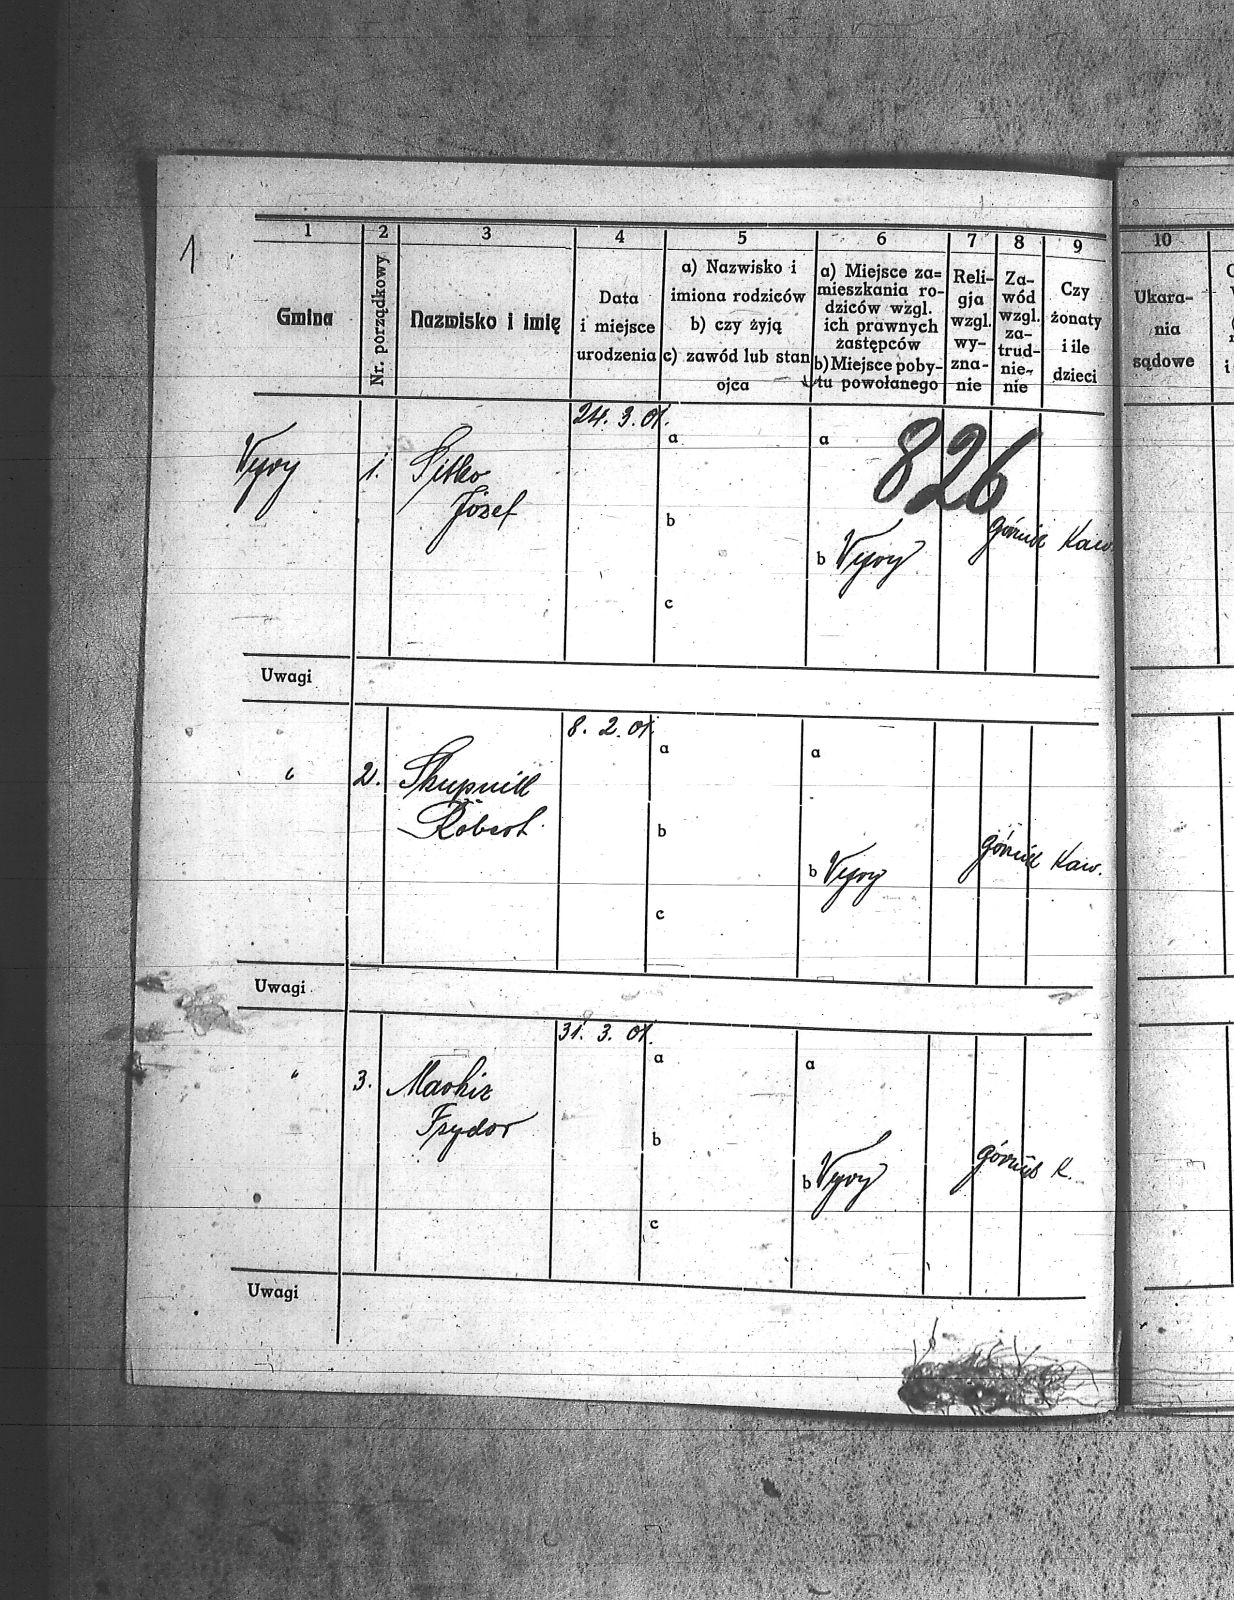 1
1 2 3 4 5 6 7 8 9 10
Gmina
Nr. porządkowy
Nazwisko i imię
Data
i miejsce
urodzenia
a) Nazwisko i
imiona rodziców
b) czy żyją
c) zawód lub stan
ojca
a) Miejsce za=
mieszkania ro-
dziców wzgl.
ich prawnych
zastępców
b) Miejsce poby-
tu powołanego
Reli-
gja
wzgl.
wy-
zna-
nie
Za-
wód
wzgl.
za-
trud-
nie-
nie
Czy
żonaty
i ile
dzieci
Ukara-
nia
sądowe
826
24. 3. 01.
Wyry 1. Sitko
Józef
a
b
c
a
b Wyry
górnik Kaw.
Uwagi
8. 2. 01.
" 2. Skupnik
Robert
a
b
c
a
b Wyry
górnik Kaw.
Uwagi
31. 3. 01.
" 3.
Izydor
a
b
c
a
b Wyry
górnik K.
Uwagi